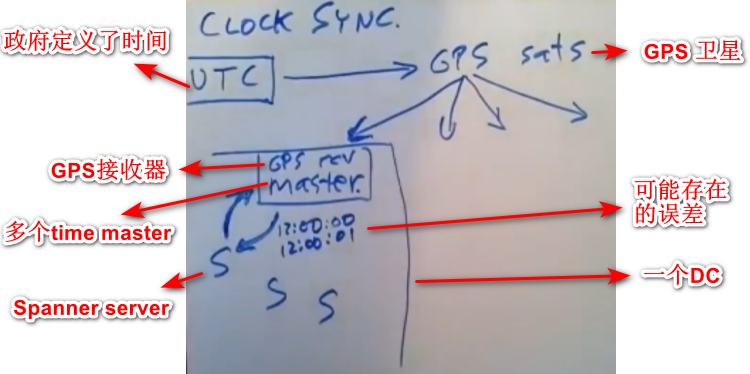 CLOCK SYNC.
政府定义了时间
UTC
GPS sats
GPS 卫星
GPS rcv
master.
GPS接收器
多个time master
12:00:00
12:00:01
可能存在
的误差
S
一个DC
Spanner server
S
S